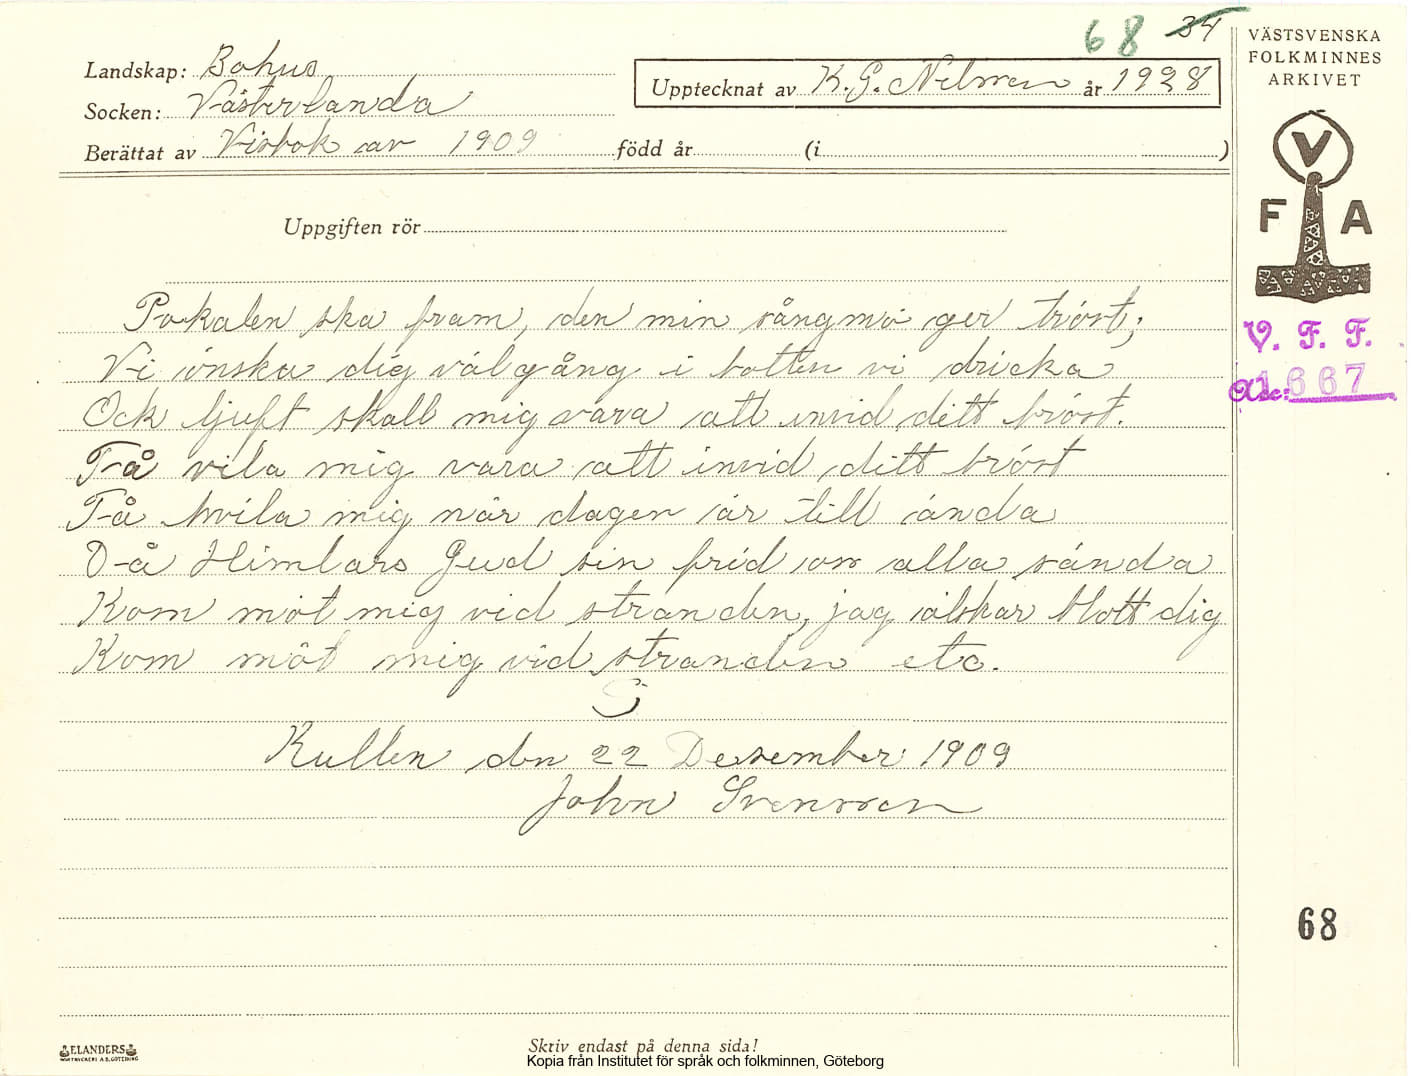 68 34
Landskap: Bohus
Socken: Västerlanda
Berättat av Visbok av 1909 född år (i )
Upptecknat av K. G. Nilsson år 1928
VÄSTSVENSKA
FOLKMINNES
ARKIVET
V
F A
V. F. F.
Acc: 1667
Uppgiften rör
Pokalen ska fram, den min sångmö ger tröst;
Vi önska dig välgång i botten vi dricka
Ock ljuft skall mig vara att invid ditt bröst.
Få vila mig vara att invid ditt bröst
Få hvila mig när dagen är till ända
Då Himlars Gud sin frid oss alla sända
Kom möt mig vid stranden, jag älskar blott dig
Kom möt mig vid stranden etc.
Kullen den 22 Desember 1909
John Svensson
68
ELANDERS
Skriv endast på denna sida!
Kopia från Institutet för språk och folkminnen, Göteborg